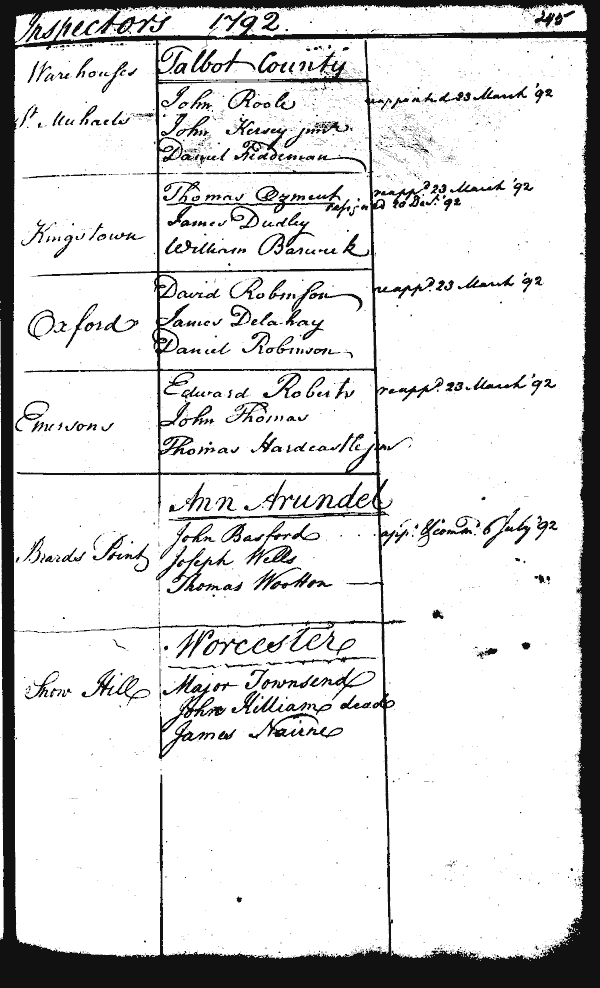 Inspectors 1792. 245
Warehouses Talbot County
John Roole reappointed 23 March '92
St. Michaels John Kersey junr.
Daniel Fiddeman
Thomas Ozment reappd. 23 March '92
resigned 20 Decr. '92
Kingstown James Dudley
William Barwick
David Robinson reappd. 23 March '92
Oxford James Delahay
Daniel Robinson
Edward Roberts reappd. 23 March '92
Emersons John Thomas
Thomas Hardcastle jun
Ann Arundel
John Basford appd. & commd. 6 July '92
Beards Point Joseph Wells
Thomas Wootton
Worcester
Show Hill Major Townsend
John Killiam dead
James Nairne